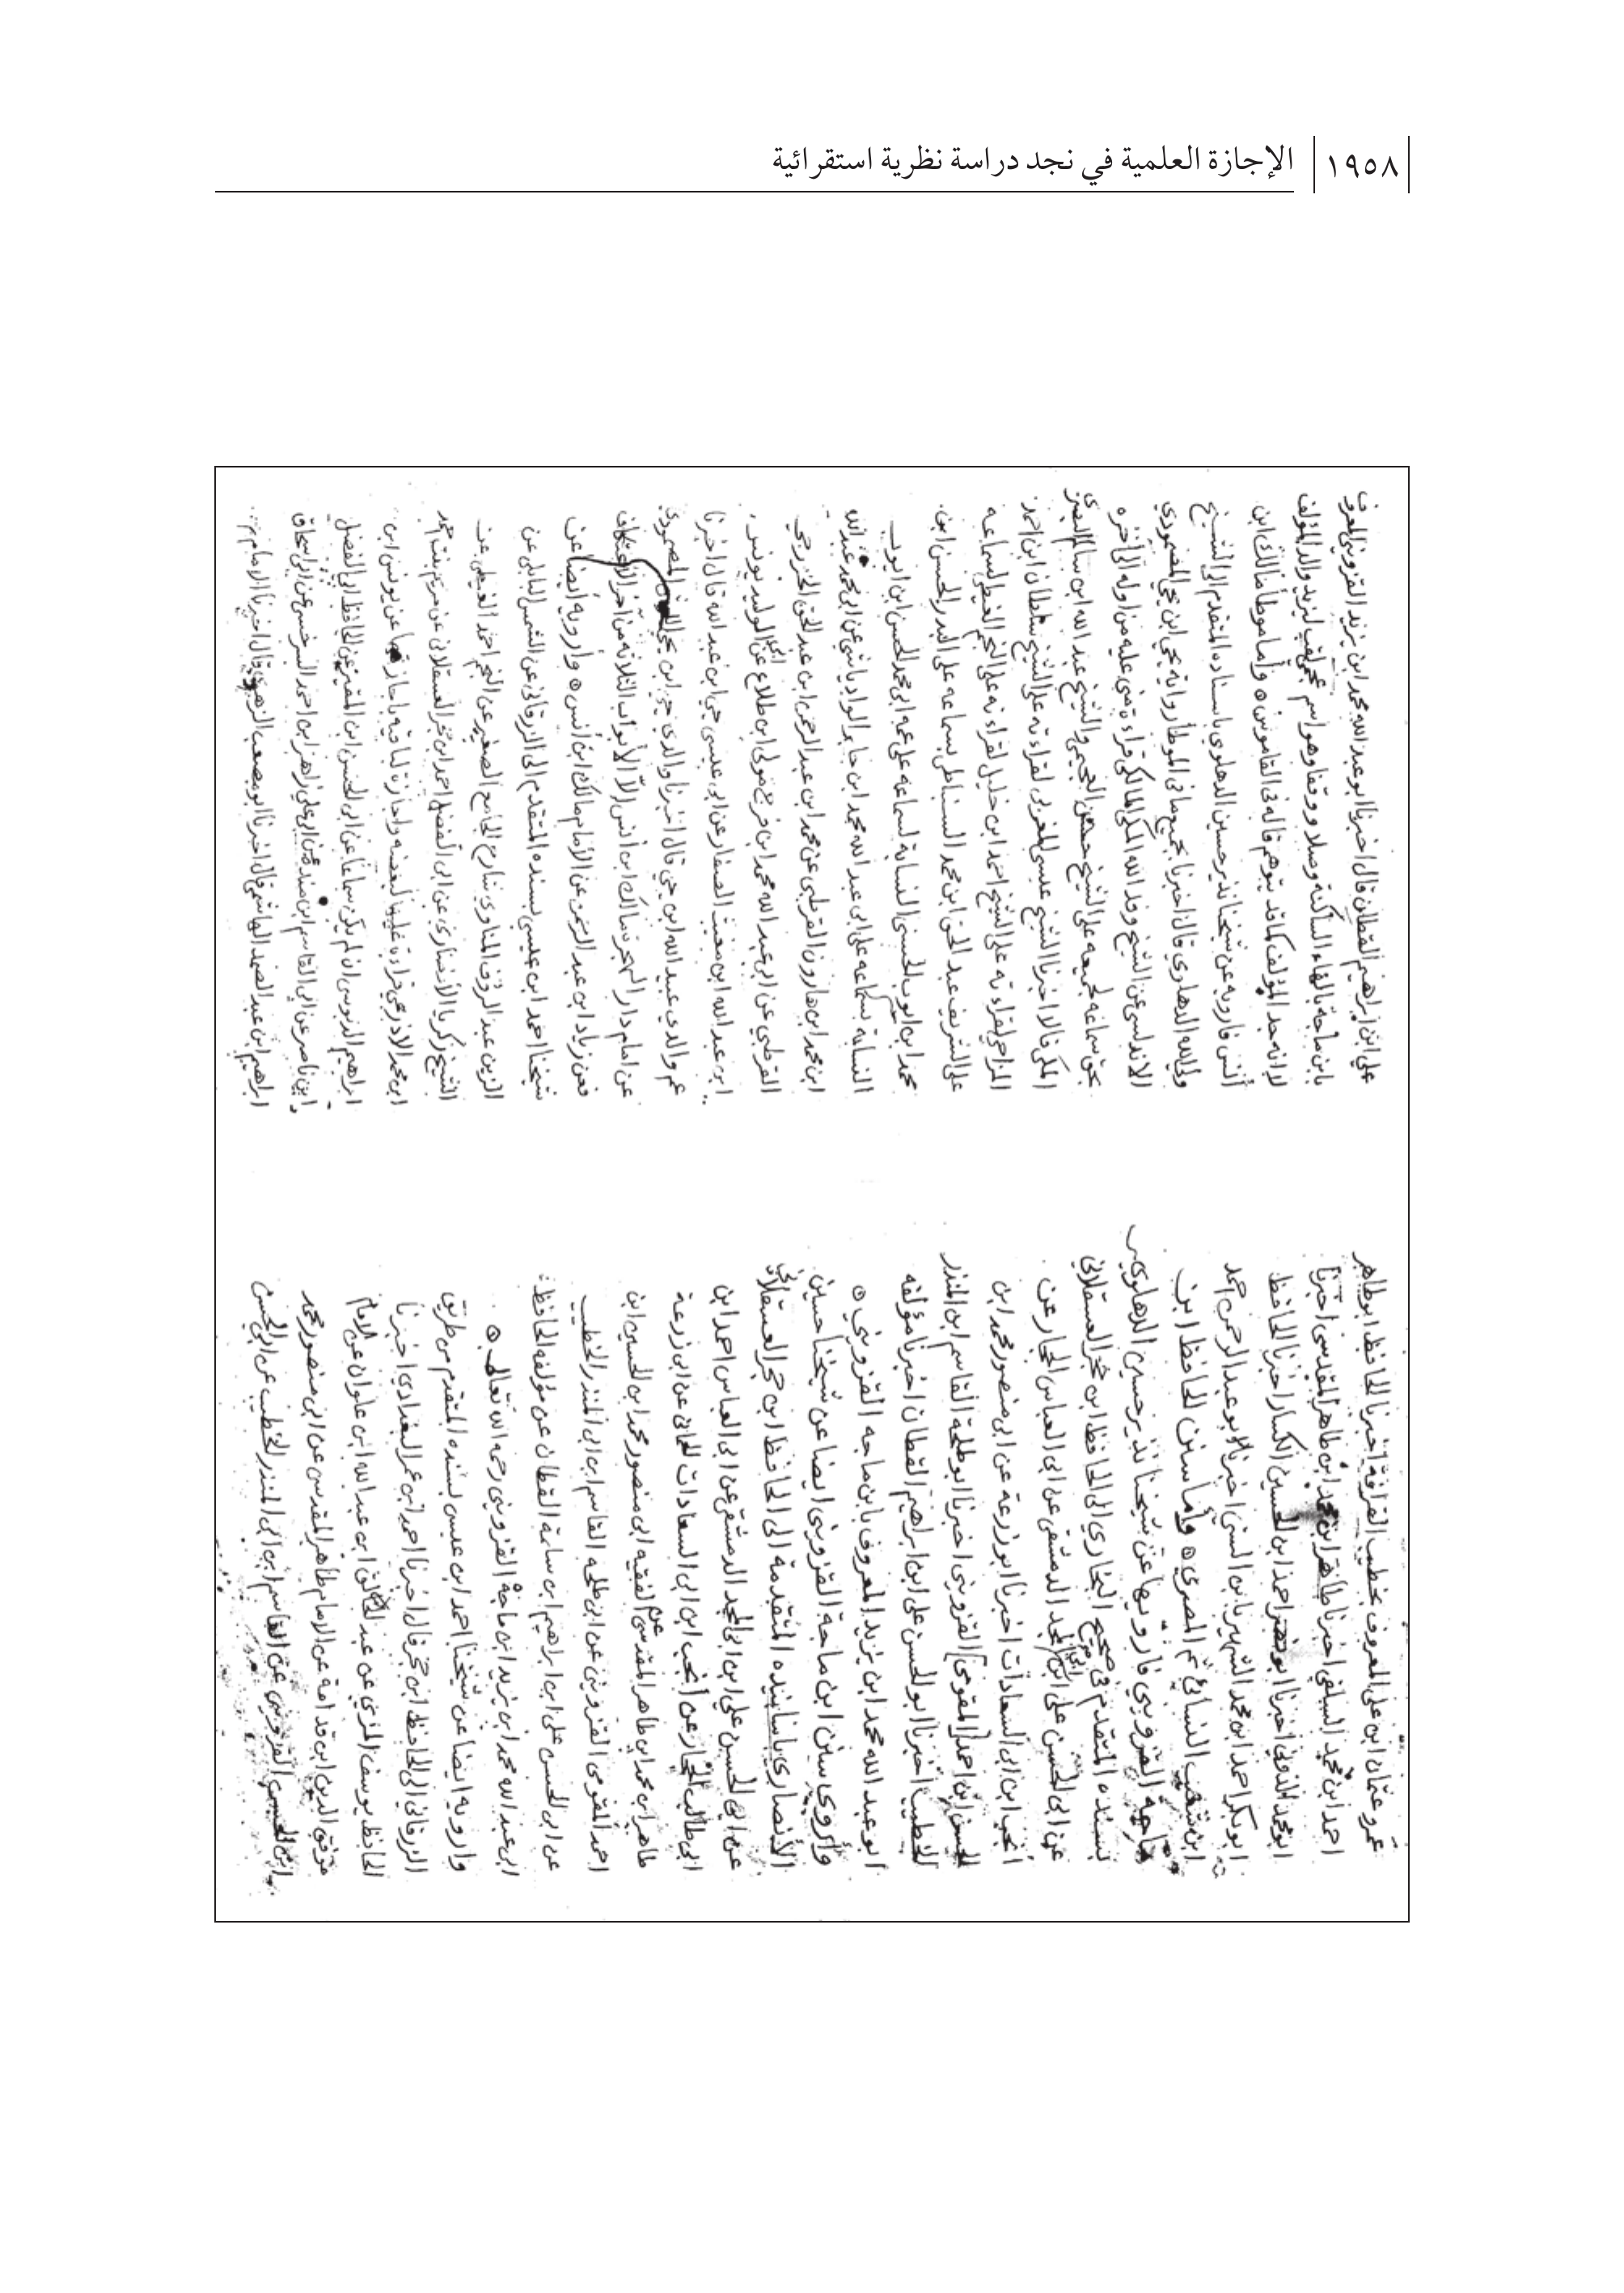 ١٩٥٨
الإجازة العلمية في نجد دراسة نظرية استقرائية
عمرو عثمان ابن علي المعروف بخطيب القرافة اخبرنا الحافظ ابوطاهر
احمد ابن محمد السلفي اخبرنا طاهر ابن محمد ابن طاهر المقدسي اخبرنا
ابو محمد الدوني اخبرنا ابو نصر احمد ابن الحسين الكسار اخبرنا الحافظ
ابو بكر احمد ابن محمد الشهير بابن السني اخبرنا ابو عبد الرحمن احمد
ابن شعيب النسائي ثم المصري ٥ وأما سنن الحافظ ابن
ماجة القزويني فارويها عن شيخنا نذير حسين الدهلوي
بسنده المتقدم في صحيح البخاري الى الحافظ ابن حجر العسقلاني
عن ابي الحسن علي ابن ابي المجد الدمشقي عن ابي العباس الحجار عن
انجب ابن ابي السعادات اخبرنا ابو زرعة عن ابي منصور محمد ابن
الحسين ابن احمد المقومي القزويني اخبرنا ابو طلحة القاسم ابن المنذر
الخطيب اخبرنا ابو الحسن علي ابن ابراهيم القطان اخبرنا مؤلفه
ابو عبد الله محمد ابن يزيد المعروف بابن ماجه القزويني ٥
وأروي سنن ابن ماجة القزويني ايضا عن شيخنا حسين
الأنصاري باسانيده المتقدمة الى الحافظ ابن حجر العسقلاني
عن ابي الحسن علي ابن ابي المجد الدمشقي عن ابي العباس احمد ابن
ابي طالب الحجار عن انجب ابن ابي السعادات الحماني عن ابي زرعة
طاهر ابن محمد ابن طاهر المقدسي عن الفقيه ابي منصور محمد ابن الحسين ابن
احمد المقومي القزويني عن ابي طلحه القاسم ابن ابي المنذر الخطيب
عن ابي الحسن علي ابن ابراهيم ابن سلمة القطان عن مؤلفه الحافظ
ابي عبد الله محمد ابن يزيد ابن ماجة القزويني رحمه الله تعالى ٥
وارويه ايضا عن شيخنا احمد ابن عيسى بسنده المتقدم من طريق
الزرقاني الى الحافظ ابن حجر قال اخبرنا احمد ابن عمر البغدادي اخبرنا
الحافظ يوسف المزي عن عبد الخالق ابن عبد الله ابن علوان عن الامام
موفق الدين ابن قدامة عن الامام طاهر المقدسي عن ابي منصور محمد
ابن الحسين القزويني عن القاسم ابن ابي المنذر الخطيب عن ابي الحسن
علي ابن ابراهيم القطان قال اخبرنا ابو عبد الله محمد ابن يزيد القزويني المعروف
بابن ماجة بالهاء الساكنة وصلا ووقفا وهو اسم عجمي لقب ليزيد والد المؤلف
لا انه جد المؤلف كما قد يتوهم قاله في القاموس ٥ وأما موطأ مالك ابن
أنس فارويه عن شيخنا نذير حسين الدهلوي باسناده المتقدم الى الشيخ
ولي الله الدهلوي قال اخبرنا بجميع ما في الموطأ رواية يحيى ابن يحيى المصمودي
الاندلسي عن الشيخ وفد الله المكي المالكي قراءة مني عليه من اوله الى آخره
بحق سماعه لجميعه على الشيخ حسن العجيمي والشيخ عبد الله ابن سالم البصري
المكي قالا اخبرنا الشيخ عيسى المغربي لقراءته على الشيخ سلطان ابن احمد
المزاحي لقراءته على الشيخ احمد ابن خليل لقراءته على النجم الغيطي لسماعه
على الشريف عبد الحق ابن محمد السنباطي بسماعه على البدر الحسن ابن
محمد ابن ايوب الحسني النسابة لسماعه على عمه ابي محمد الحسن ابن ايوب
النسابة بسماعه على ابي عبد الله محمد ابن جابر الوادياشي عن ابي محمد عبد الله
ابن محمد ابن هارون القرطبي عن محمد ابن عبد الرحمن ابن عبد الحق الخزرجي
القرطبي عن ابي عبد الله محمد ابن فرج مولى ابن طلاع عن ابي الوليد يونس
ابن عبد الله ابن مغيث الصفار عن ابي عيسى يحيى ابن عبد الله قال اخبرنا
عم والدي عبيد الله ابن يحيى قال اخبرنا والدي يحيى ابن يحيى المصمودي
عن امام دار الهجرة مالك ابن انس إلا الأبواب الثلاثة من آخر الاعتكاف
فعن زياد ابن عبد الرحمن عن الأمام مالك ابن أنس ٥ وأرويه أيضا عن
شيخنا احمد ابن عيسى بسنده المتقدم الى الزرقاني عن الشمس البابلي عن
الزين عبد الرؤف المناوي شارح الجامع الصغير عن النجم احمد الغيطي عن
الشيخ زكريا الأنصاري عن ابي الفضل احمد ابن حجر العسقلاني عن مريم بنت احمد
ابن محمد الاذرعي قراءة عليها لبعضه واجازة لباقيه باجازتها عن يونس ابن
ابراهيم الدبوسي ان لم يكن سماعا عن ابي الحسن ابن المقير عن الحافظ ابي الفضل
ابن ناصر عن ابي القاسم ابن منده عن ابي علي زاهر ابن احمد السرخسي عن ابي اسحاق
ابراهيم ابن عبد الصمد الهاشمي قال اخبرنا ابو مصعب الزهري قال اخبرنا الامام